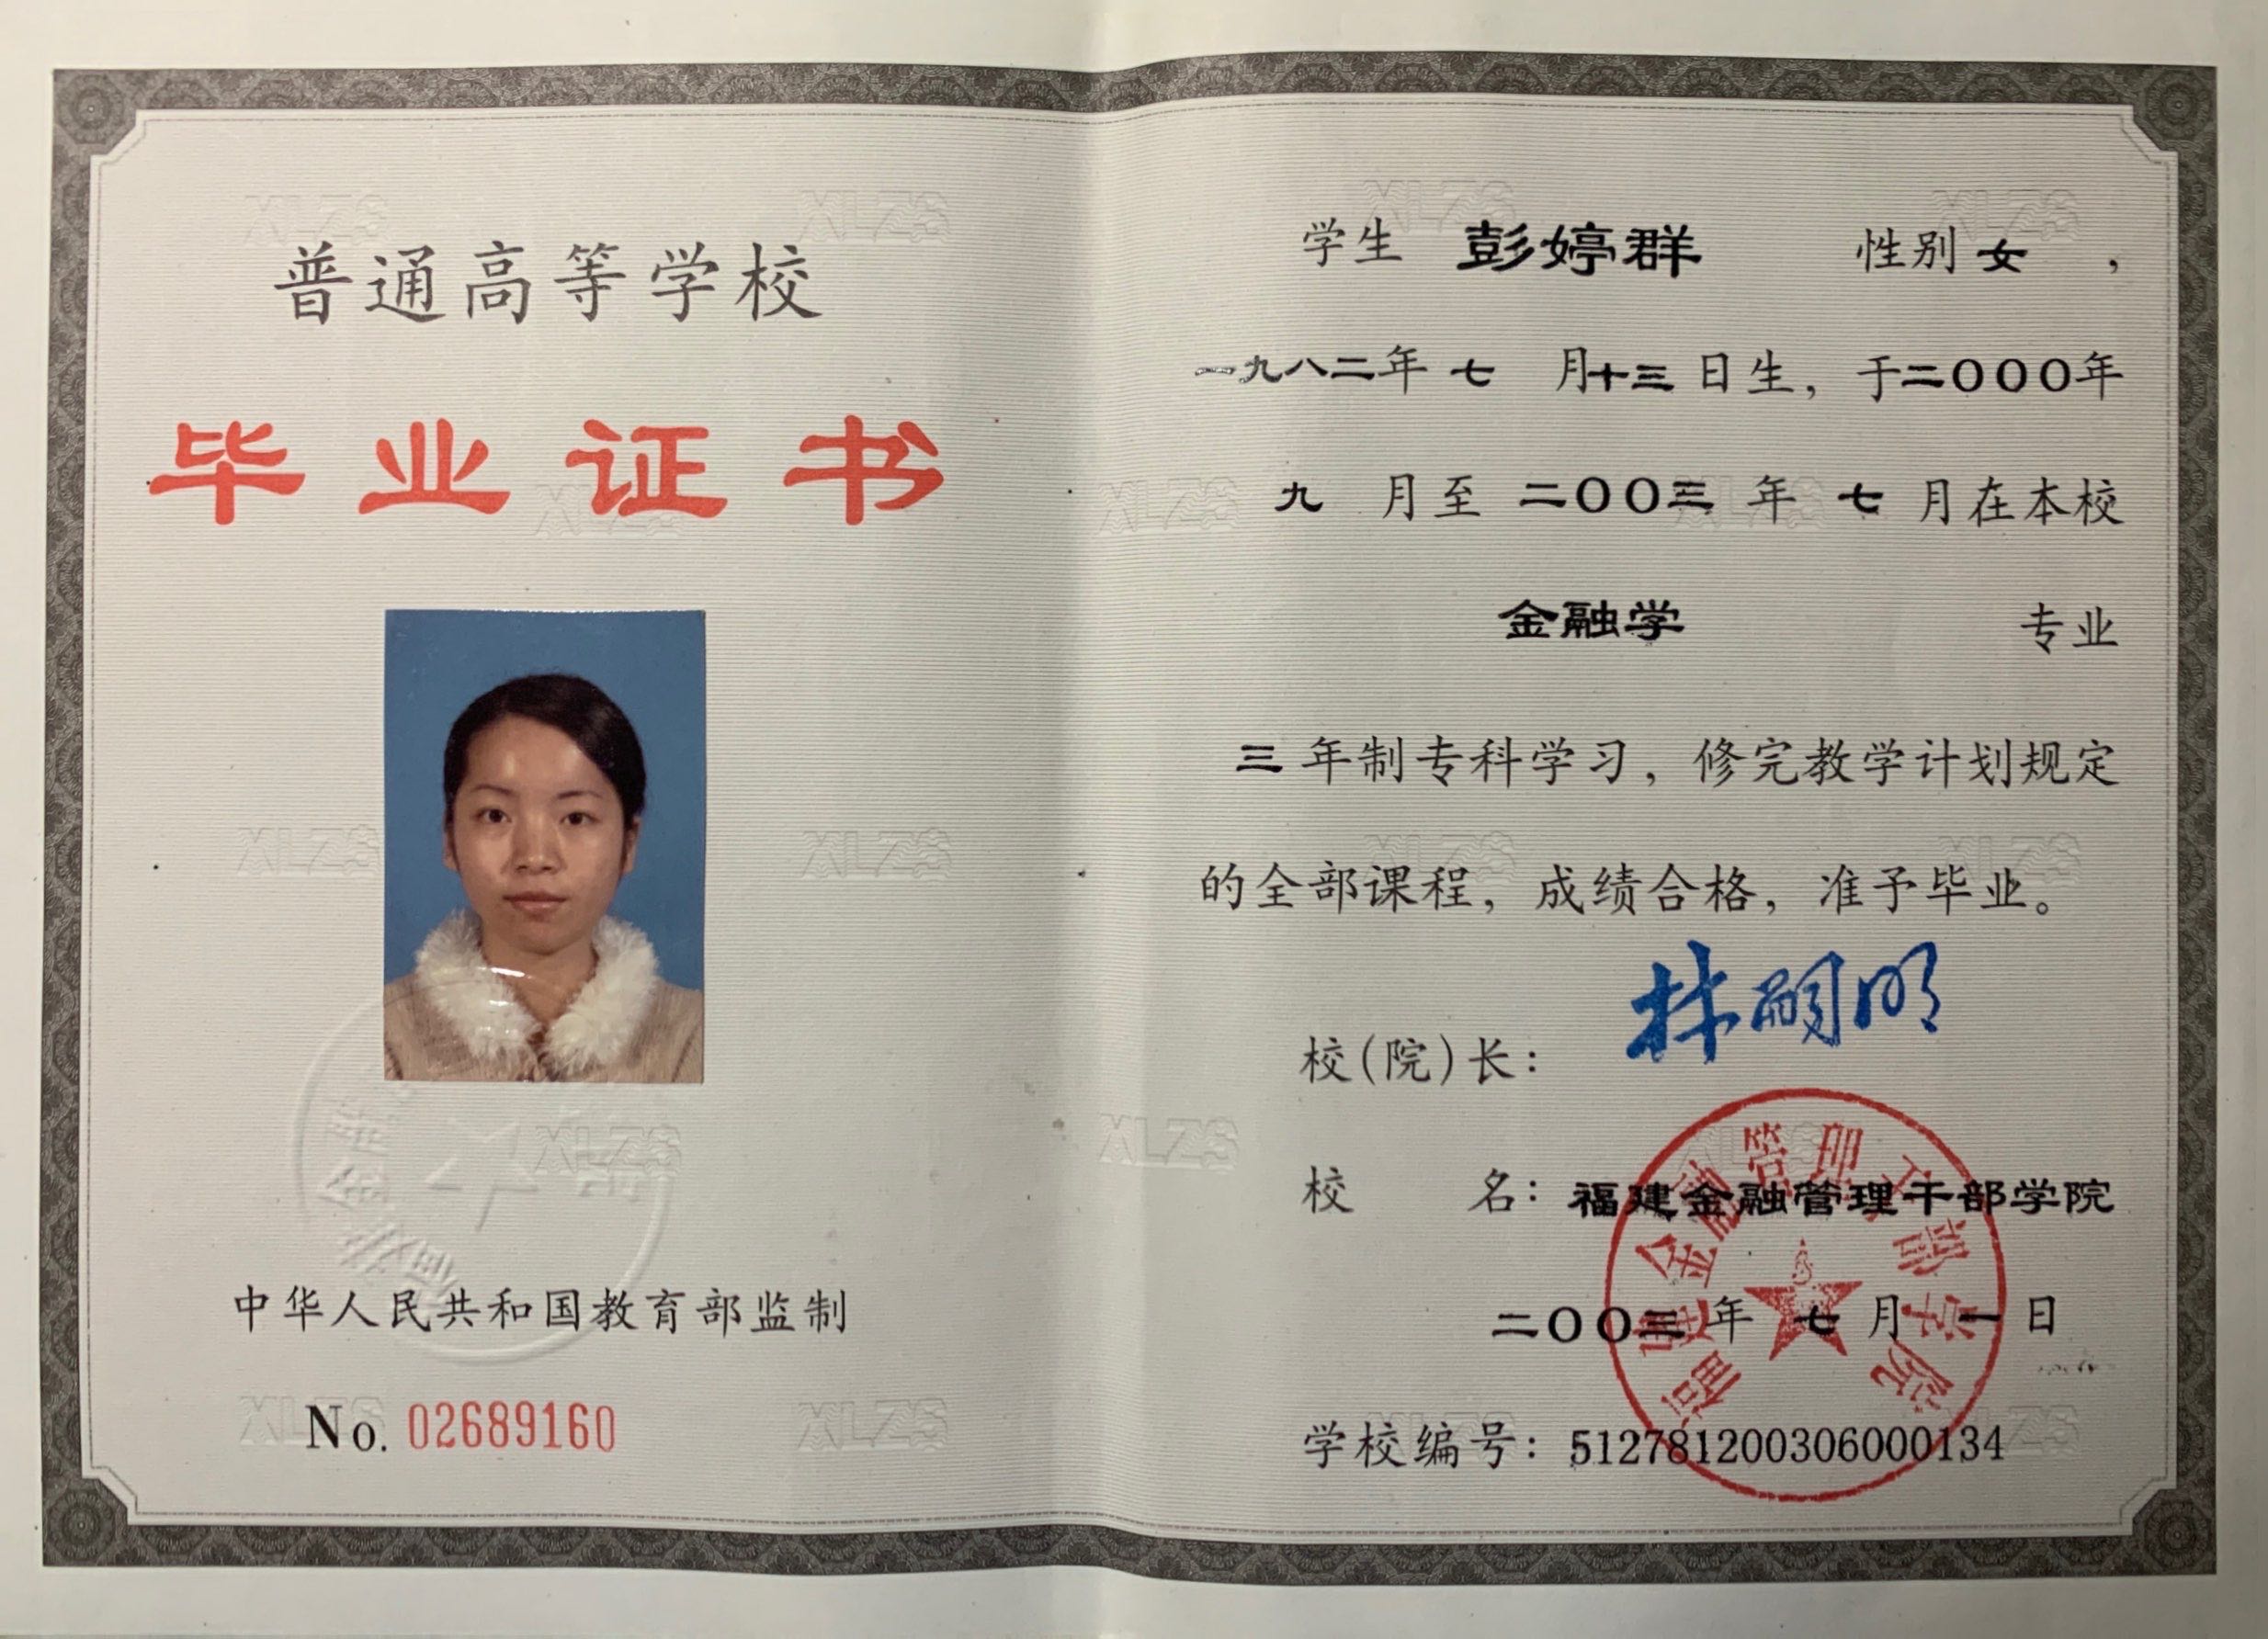 普通高等学校
毕业证书
中华人民共和国教育部监制
No. 02689160
学生 彭婷群 性别 女 ,
一九八二年 七 月十三日生, 于二〇〇〇年
九 月至 二〇〇三 年 七 月在本校
金融学 专业
三 年制专科学习, 修完教学计划规定
的全部课程, 成绩合格, 准予毕业。
校(院)长: 林嗣明
校 名: 福建金融管理干部学院
二〇〇三 年 七 月 一 日
学校编号: 512781200306000134
福建金融管理干部学院
XLZS